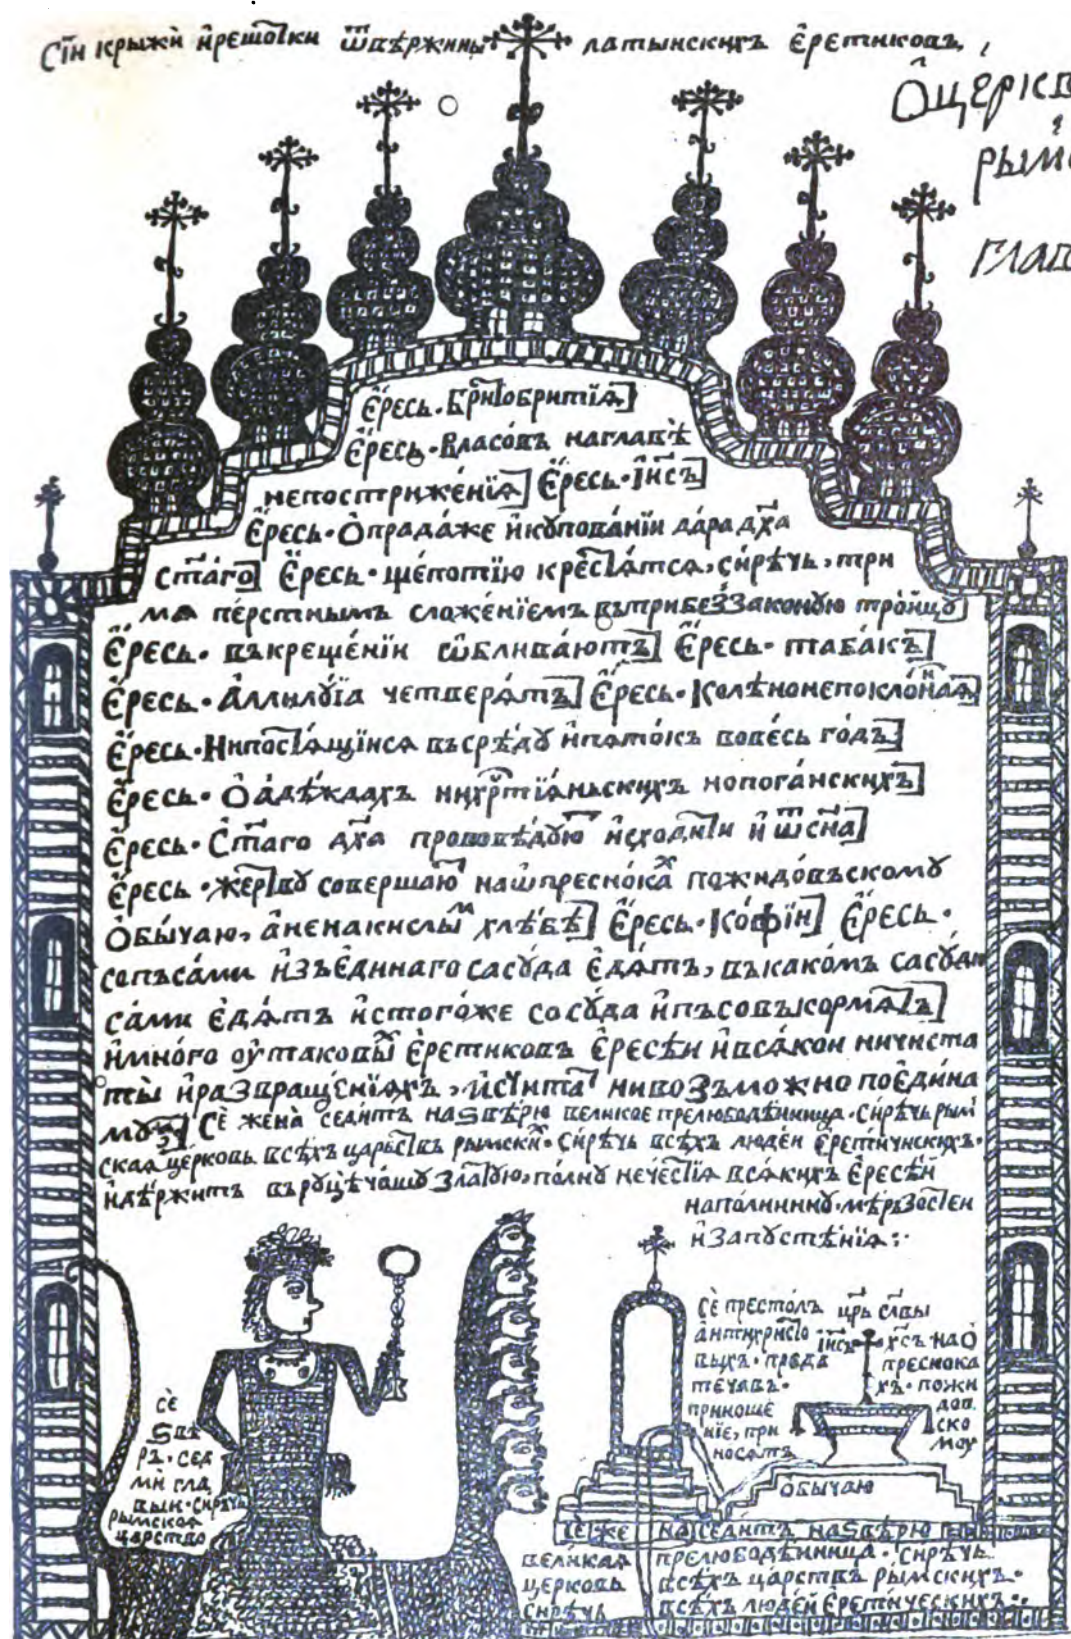 Сїи крыжи и решотки ѿвѣржины латынскихъ еретиковъ,
Ѻ церкв
рым
глав
Ересь · Бритобритїѧ
Ересь · Власовъ на главѣ
непострижениѧ Ересь · Iисъ
Ересь · О прадаже и купованїи дара дха
стаго Ересь · щепотїю крестѧтсѧ, сирѣчь, три
мѧ перстнымъ сложенїемъ въ трибеззаконную тройцу
Ересь · въ крещенїи ѡбливаютъ Ересь · табакъ
Ересь · Аллилуїа четверѧтъ Ересь · Колѣнонепоклоннаѧ
Ересь · Нипостѧщїисѧ въ срѣду и пѧтокъ вовесь годъ
Ересь · О адѣждахъ нихртїѧньскихъ нопоганскихъ
Ересь · Стаго дха проповѣдую исходѧи и ѿ сна
Ересь · жертву совершаю на ѡпреснока пожидовъскому
обычаю, а не на кислы хлѣбѣ Ересь · Кофїи Ересь ·
сопъсами изъ единаго сасуда едѧтъ, въ какомъ сасуди
сами едѧтъ истогоже сосуда и пъсовъ кормѧтъ
и много оу таковы еретиковъ ересѣи и всѧкои ничиста
ты и развращенїѧхъ, исчита нивозъможно поедина
му Се жена седитъ на ѕвѣрю великое прелюбодѣиница · сирѣчь рым
скаѧ церковь всѣхъ царствъ рымски · сирѣчь всѣхъ людеи еретичискихъ ·
и дѣржитъ въ руцѣ чашу златую, полну нечестїѧ всѧкихъ ересѣи
наполнинну · мѣрзостеи
и запустѣнїѧ :·
Се
ѕвѣ
ръ · сед
ми гла
выи · сирѣчь
рымскоѧ
царство
Се престолъ
антихристо
выхъ · преда
течавъ ·
приноше
нїе, при
носѧтъ
црь славы
iисъ хсъ на о
преснока
хъ · пожи
дов
ско
моу
обычаю
Се же на седитъ на ѕвѣрю
великаѧ прелюбодѣиница · сирѣчь
церковь всѣхъ царствъ рымскихъ ·
сирѣчь всѣхъ людей еретическихъ :·